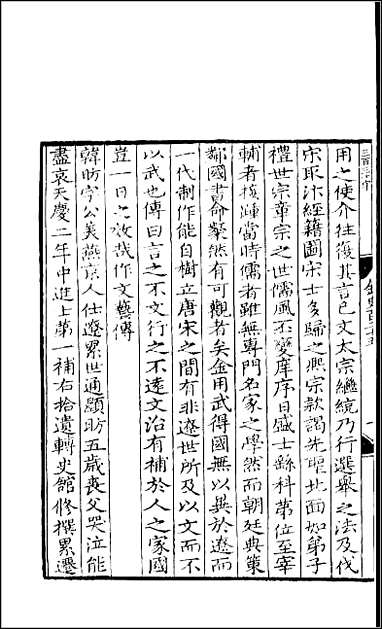 用之使介往復其言已文太宗繼統乃行選舉之法及伐
宋取汴經籍圖宋士多歸之熙宗款謁先聖北面如弟子
禮世宗章宗之世儒風丕變庠序日盛士繇科第位至宰
輔者接踵當時儒者雖無專門名家之學然而朝廷典策
鄰國書命粲然有可觀者矣金用武得國無以異於遼而
一代制作能自樹立唐宋之間有非遼世所及以文而不
以武也傳曰言之不文行之不遠文治有補於人之家國
豈一日之效哉作文藝傳
韓昉字公美燕京人仕遼累世通顯昉五歲喪父哭泣能
盡哀天慶二年中進士第一補右拾遺轉史館修撰累遷